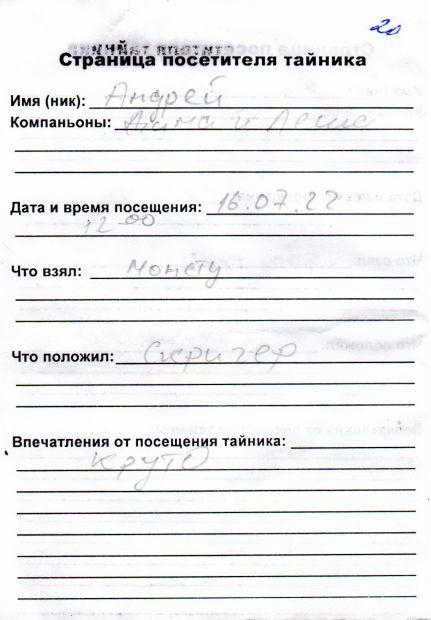 20
Страница посетителя тайника
Имя (ник): Андрей
Компаньоны: Дима и Леша
Дата и время посещения: 16.07.22
12 00
Что взял: монету
Что положил: Скричер
Впечатления от посещения тайника:
круто